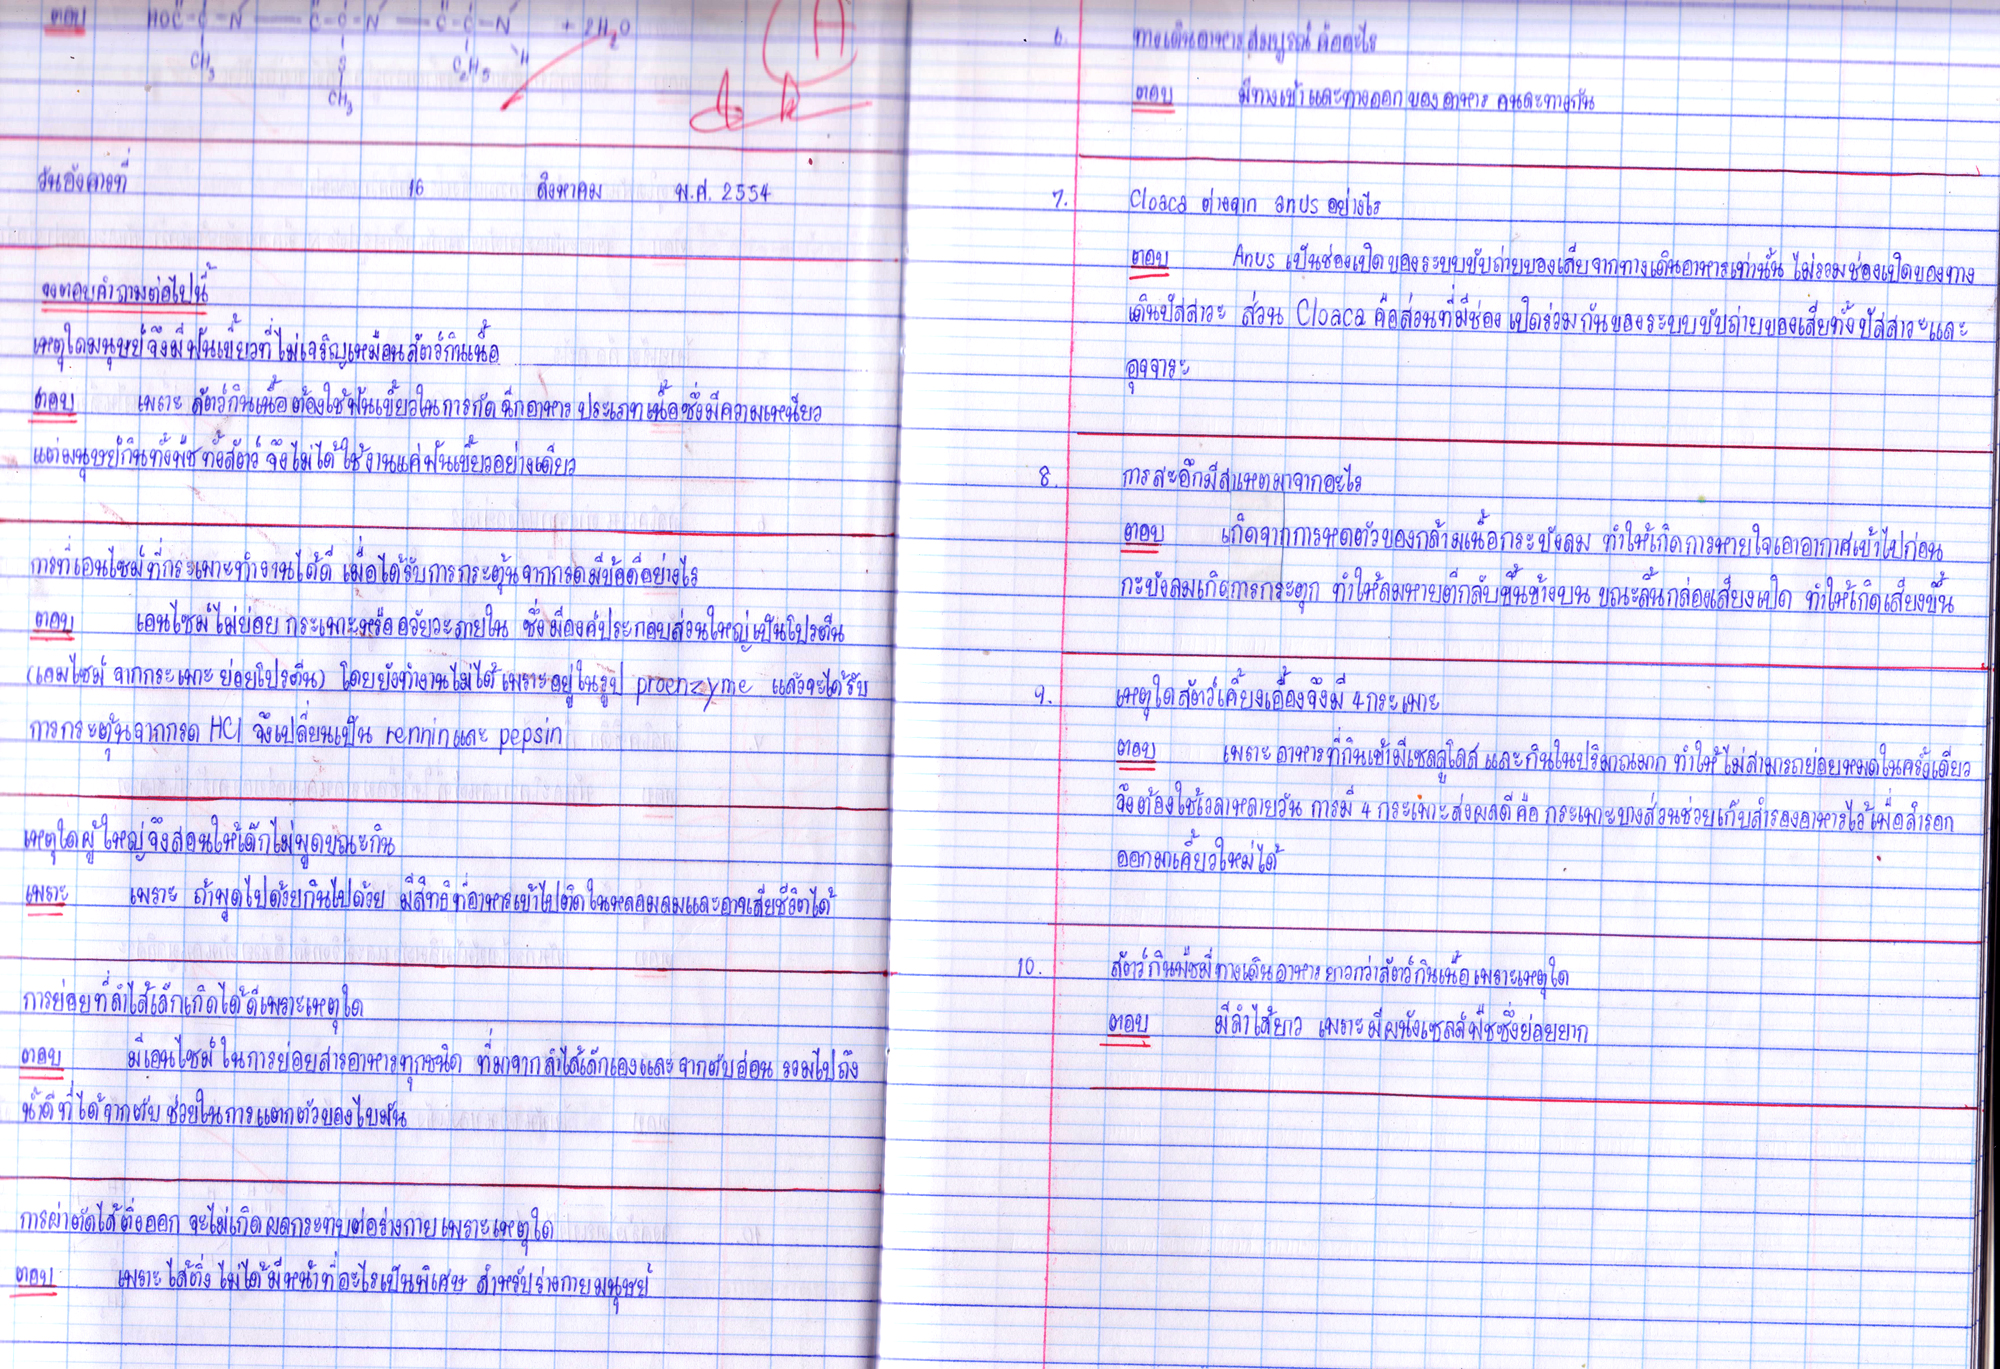 ตอบ HOC-C-N-C-C-N-C-C-N + 2H2O
CH3 S C2H5 H
CH3
วันอังคารที่ 16 สิงหาคม พ.ศ. 2554
จงตอบคำถามต่อไปนี้
เหตุใดมนุษย์จึงมีฟันเขี้ยวที่ไม่เจริญเหมือนสัตว์กินเนื้อ
ตอบ เพราะ สัตว์กินเนื้อต้องใช้ฟันเขี้ยวในการกัด ฉีกอาหาร ประเภทเนื้อซึ่งมีความเหนียว
แต่มนุษย์กินทั้งพืช ทั้งสัตว์ จึงไม่ได้ใช้งานแค่ฟันเขี้ยวอย่างเดียว
การที่เอนไซม์ที่กระเพาะทำงานได้ดี เมื่อได้รับการกระตุ้นจากกรดมีข้อดีอย่างไร
ตอบ เอนไซม์ไม่ย่อย กระเพาะหรืออวัยวะภายใน ซึ่งมีองค์ประกอบส่วนใหญ่เป็นโปรตีน
(เอมไซม์ จากกระเพาะ ย่อยโปรตีน) โดยยังทำงานไม่ได้ เพราะอยู่ในรูป proenzyme แล้วจะได้รับ
การกระตุ้นจากกรด HCl จึงเปลี่ยนเป็น renninและ pepsin
เหตุใดผู้ใหญ่จึงสอนให้เด็กไม่พูดขณะกิน
เพราะ เพราะ ถ้าพูดไปด้วยกินไปด้วย มีสิทธิที่อาหารเข้าไปติดในหลอมลมและอาจเสียชีวิตได้
การย่อยที่ลำไส้เล็กเกิดได้ดีเพราะเหตุใด
ตอบ มีเอนไซม์ในการย่อยสารอาหารทุกชนิด ที่มาจากลำไส้เล็กเองและจากตับอ่อน รวมไปถึง
น้ำดีที่ได้จากตับ ช่วยในการแตกตัวของไขมัน
การผ่าตัดไส้ติ่งออก จะไม่เกิดผลกระทบต่อร่างกายเพราะเหตุใด
ตอบ เพราะไส้ติ่ง ไม่ได้มีหน้าที่อะไรเป็นพิเศษ สำหรับร่างกายมนุษย์
6. ทางเดินอาหารสมบูรณ์ คืออะไร
ตอบ มีทางเข้าและทางออกของอาหาร คนละทางกัน
7. Cloaca ต่างจาก anus อย่างไร
ตอบ Anus เป็นช่องเปิดของระบบขับถ่ายของเสียจากทางเดินอาหารเท่านั้น ไม่รวมช่องเปิดของทาง
เดินปัสสาวะ ส่วน Cloaca คือส่วนที่มีช่องเปิดร่วมกันของระบบขับถ่ายของเสียทั้งปัสสาวะและ
อุจจาระ
8. การสะอึกมีสาเหตุมาจากอะไร
ตอบ เกิดจากการหดตัวของกล้ามเนื้อกระบังลม ทำให้เกิดการหายใจเอาอากาศเข้าไปก่อน
กะบังลมเกิดการกระตุก ทำให้ลมหายตีกลับขึ้นข้างบน ขณะลิ้นกล่องเสียงเปิด ทำให้เกิดเสียงขึ้น
9. เหตุใดสัตว์เคี้ยงเอื้องจึงมี 4กระเพาะ
ตอบ เพราะอาหารที่กินเข้ามีเซลลูโลส และกินในปริมาณมาก ทำให้ไม่สามารถย่อยหมดในครั้งเดียว
จึงต้องใช้เวลาหลายวัน การมี 4 กระเพาะส่งผลดีคือ กระเพาะบางส่วนช่วยเก็บสำรองอาหารไว้เพื่อสำรอก
ออกมาเคี้ยวใหม่ได้
10. สัตว์กินพืชมีทางเดินอาหารยาวกว่าสัตว์กินเนื้อเพราะเหตุใด
ตอบ มีลำไส้ยาว เพราะมีผนังเซลล์พืชซึ่งย่อยยาก